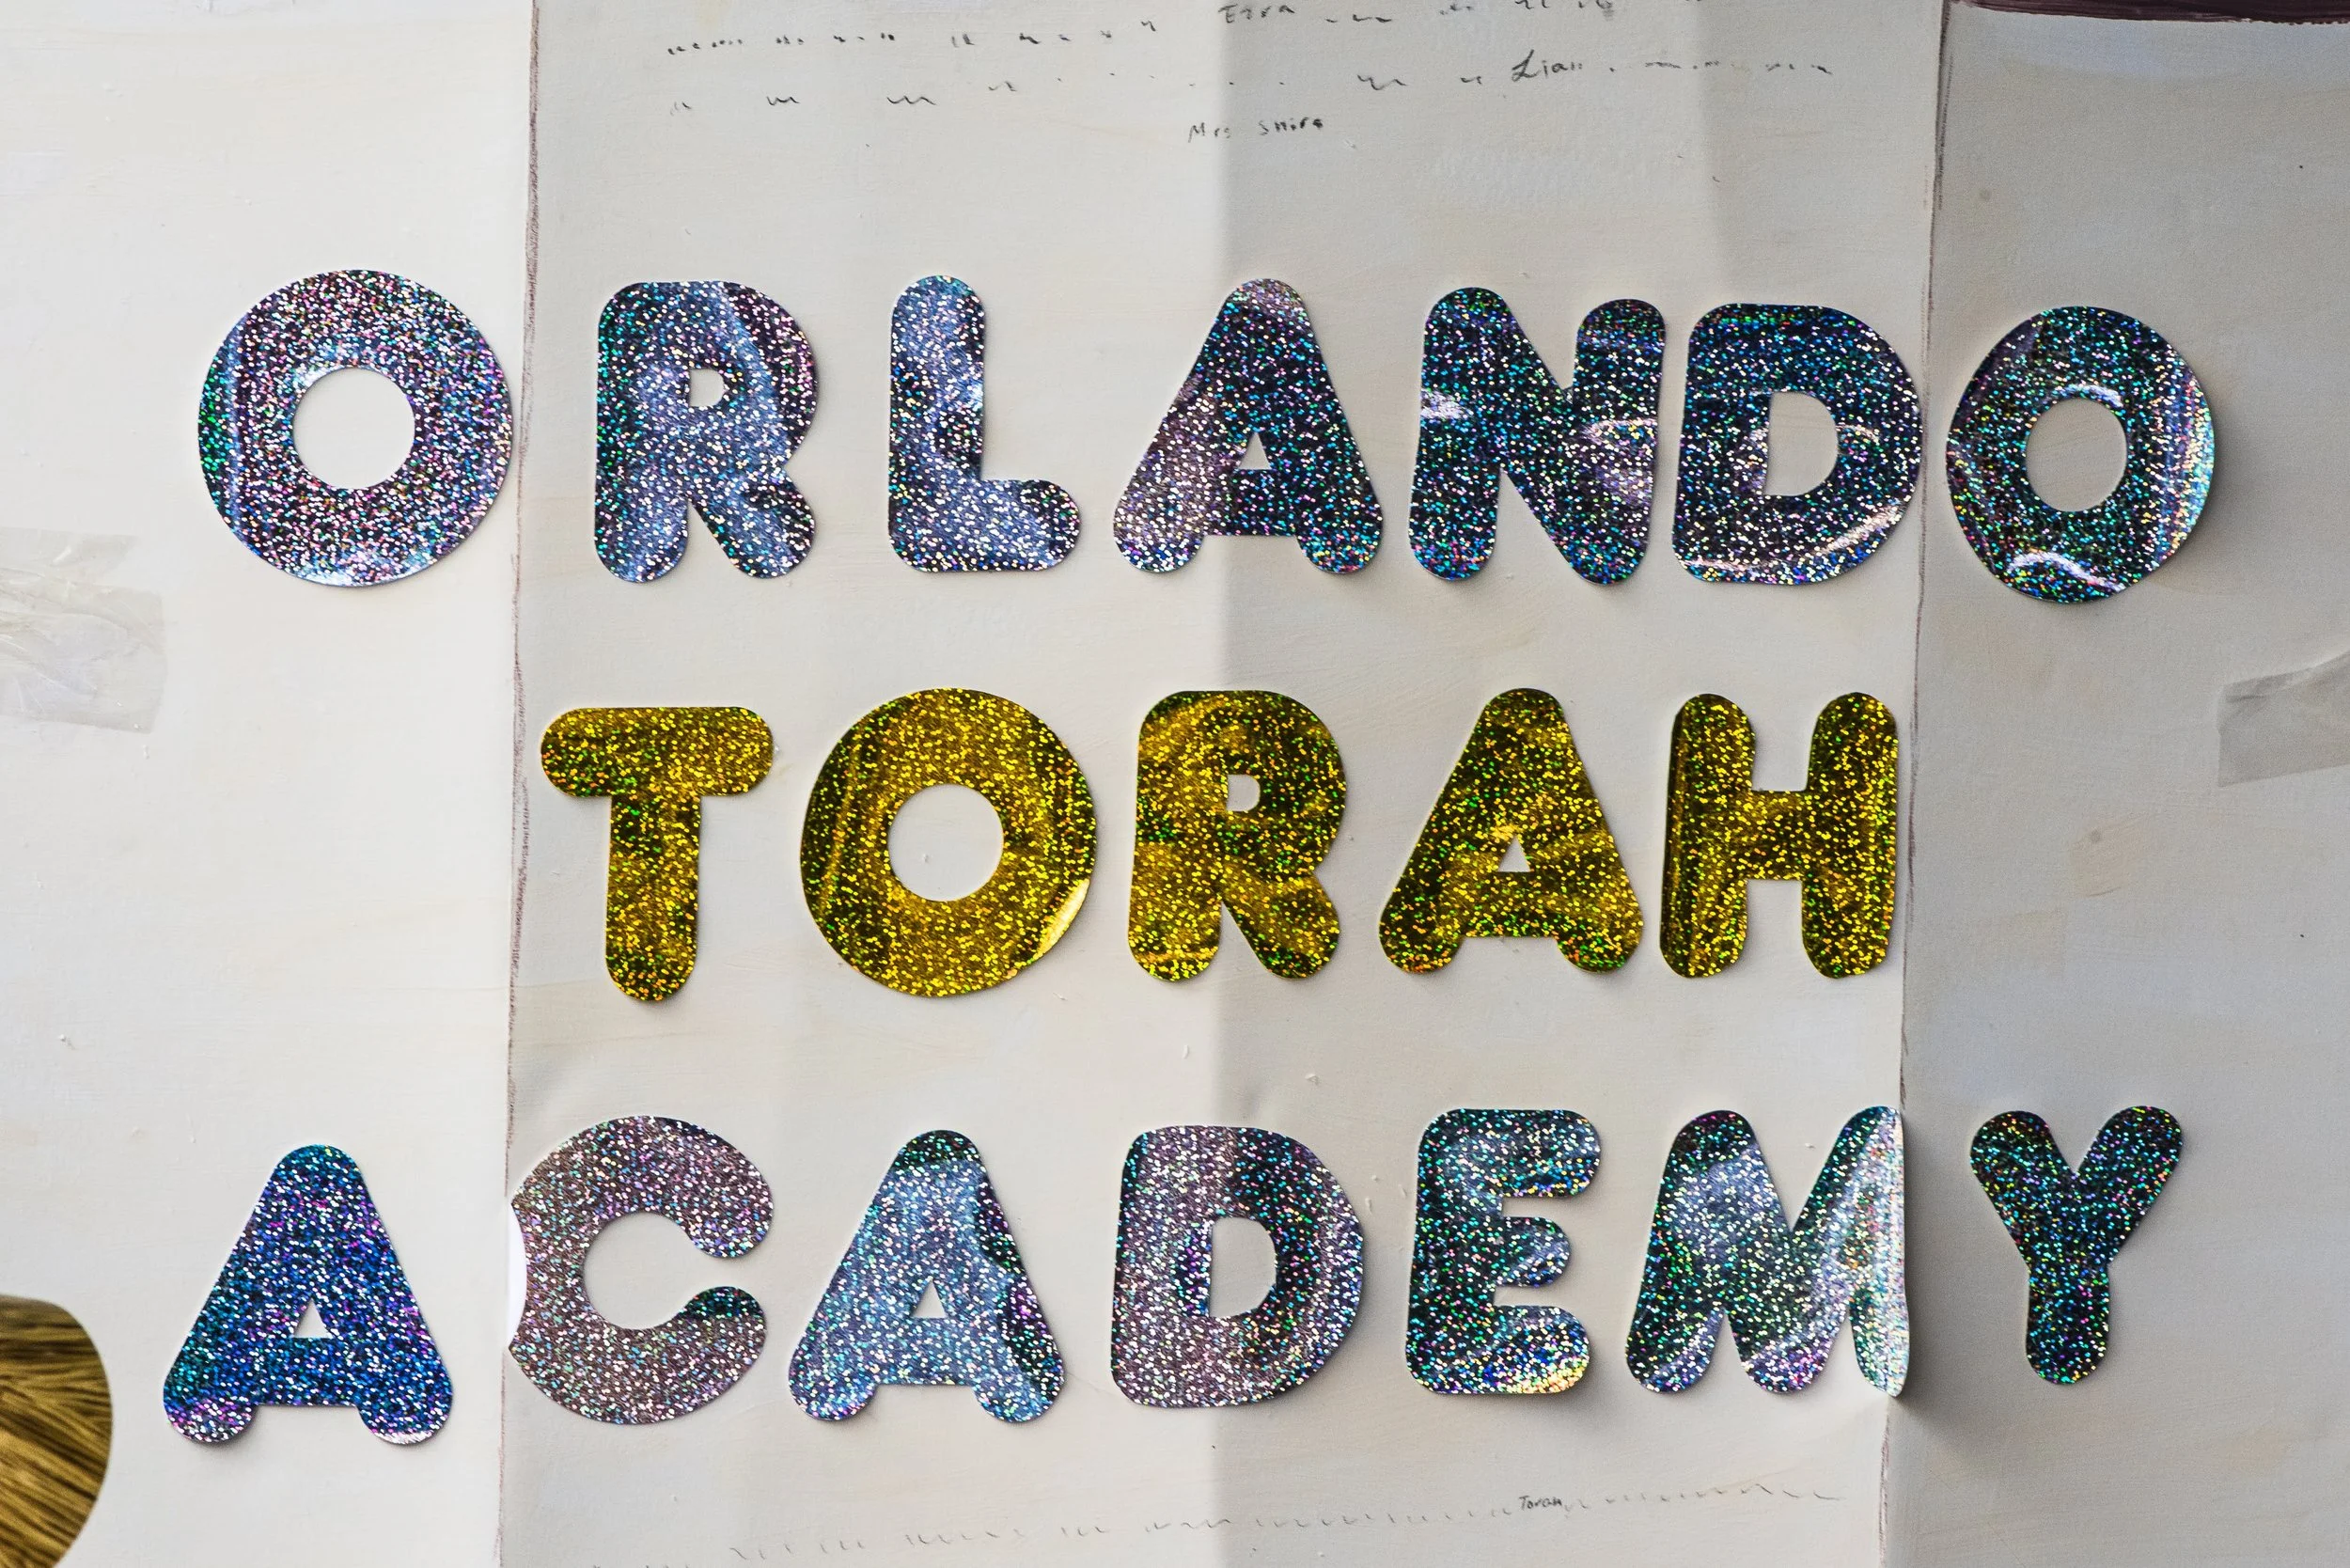 Ezra
Lian
Mrs Shira
ORLANDO
TORAH
ACADEMY
Torah